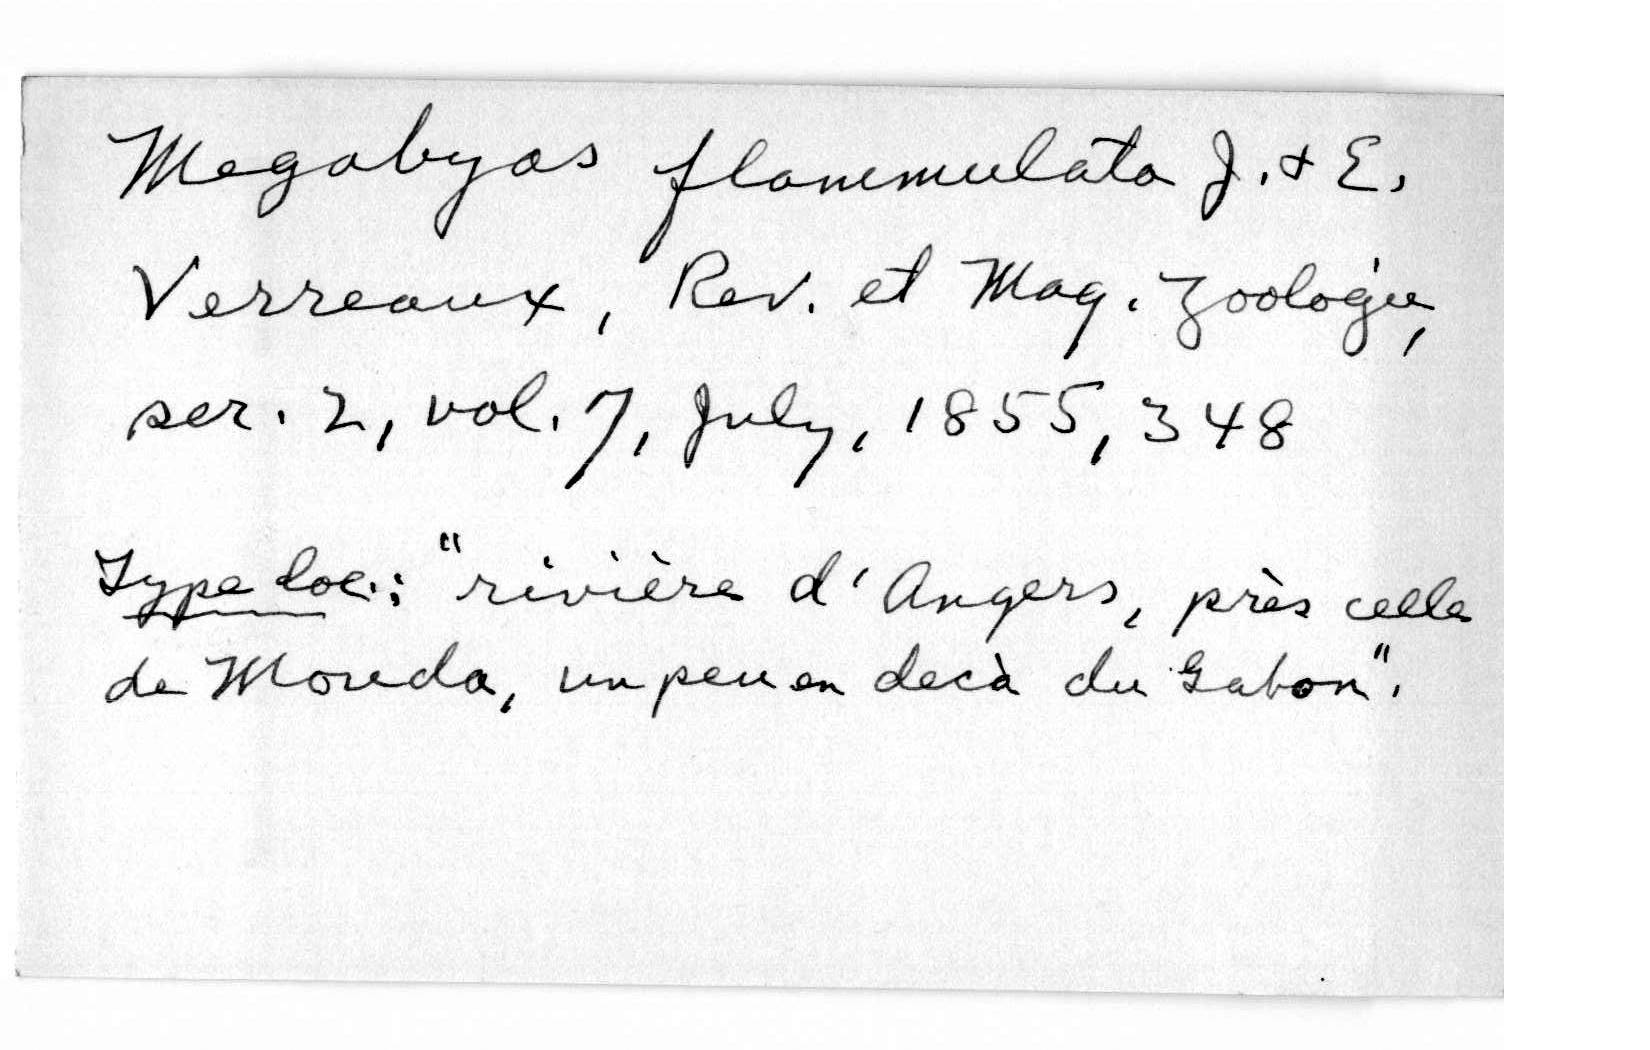 Megabyas flammulata J. & E.
Verreaux, Rev. et Mag. Zoologie,
ser. 2, vol. 7, July, 1855, 348
Type loc.: "rivière d'Angers, près celle
de Moreda, un peu en decà du Gabon".